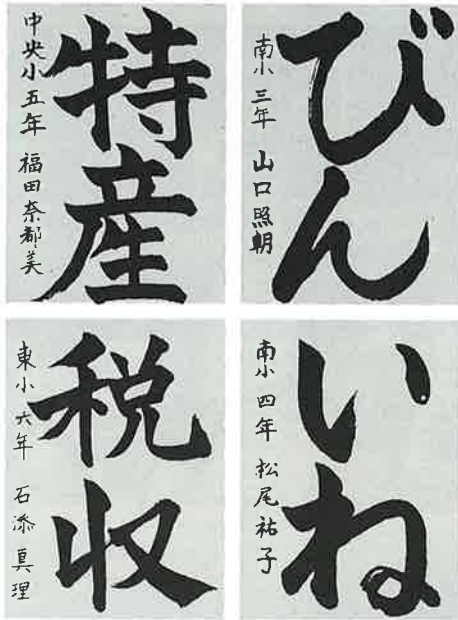 びん
南小 三年 山口照朝
特産
中央小 五年 福田奈都美
いね
南小 四年 松尾祐子
税収
東小 六年 石添真理